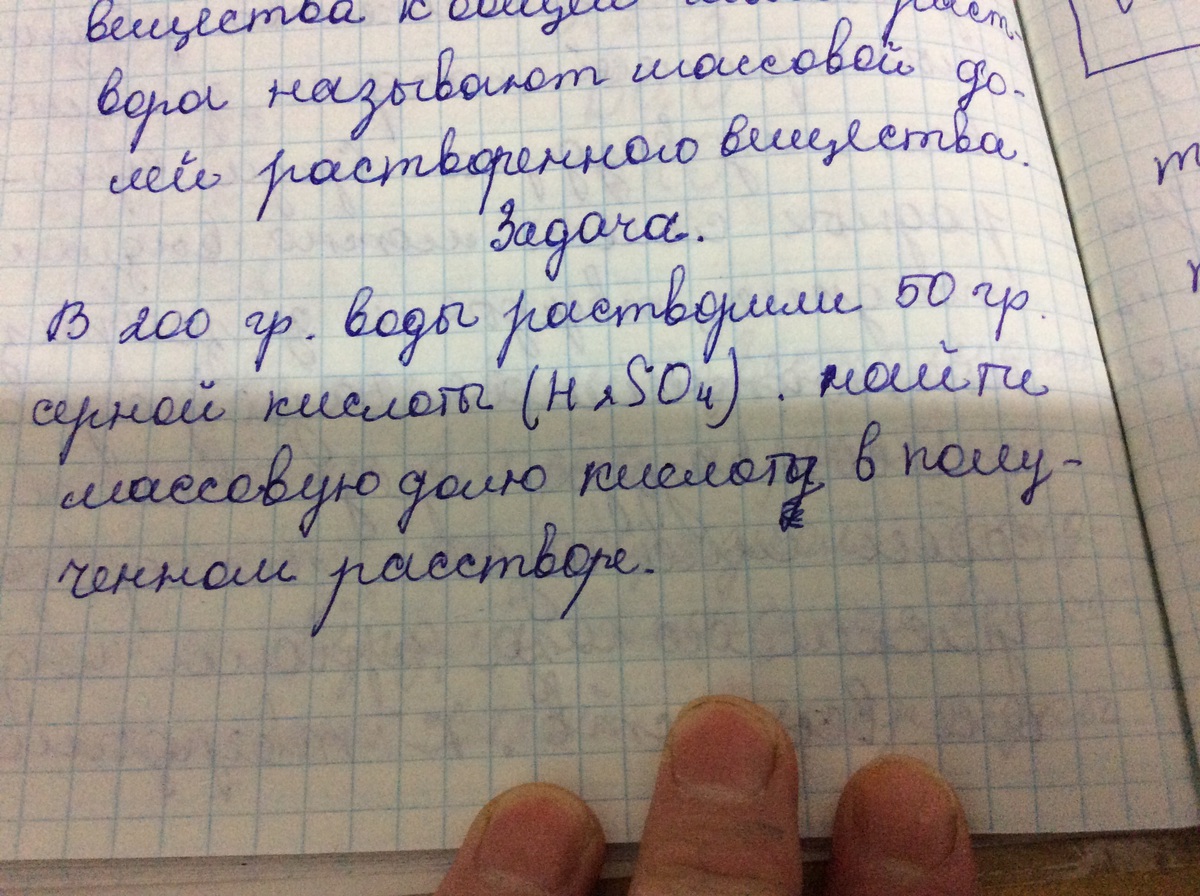 вещества к общей раст-
вора называют массовой до-
лей растворенного вещества.
Задача.
В 200 гр. воды растворили 50 гр.
серной кислоты (H2SO4). найти
массовую долю кислоты в полу-
ченном расстворе.